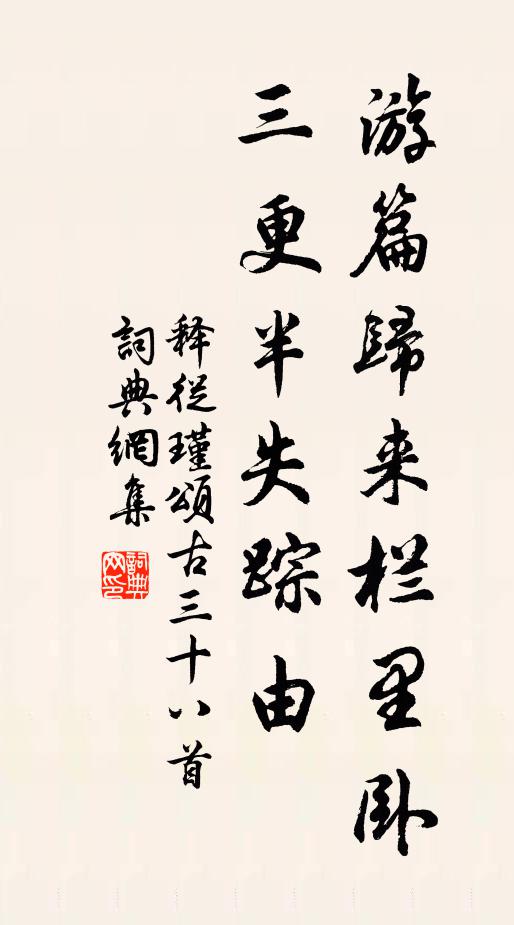 游篇歸来栏里卧
三更半失踪由
释從瑾頌古三十八首
詞典網集
詞典
网印